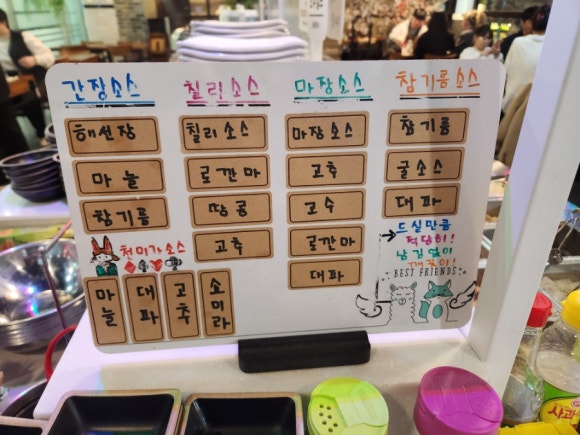 간장소스
해선장
마늘
참기름
천미가소스
마늘
대파
고추
소미라
칠리소스
칠리소스
로깐마
땅콩
고추
마장소스
마장소스
고추
고수
로깐마
대파
참기름소스
참기름
굴소스
대파
드실만큼
적당히!
남김없이
깨끗이!
BEST FRIENDS
사과